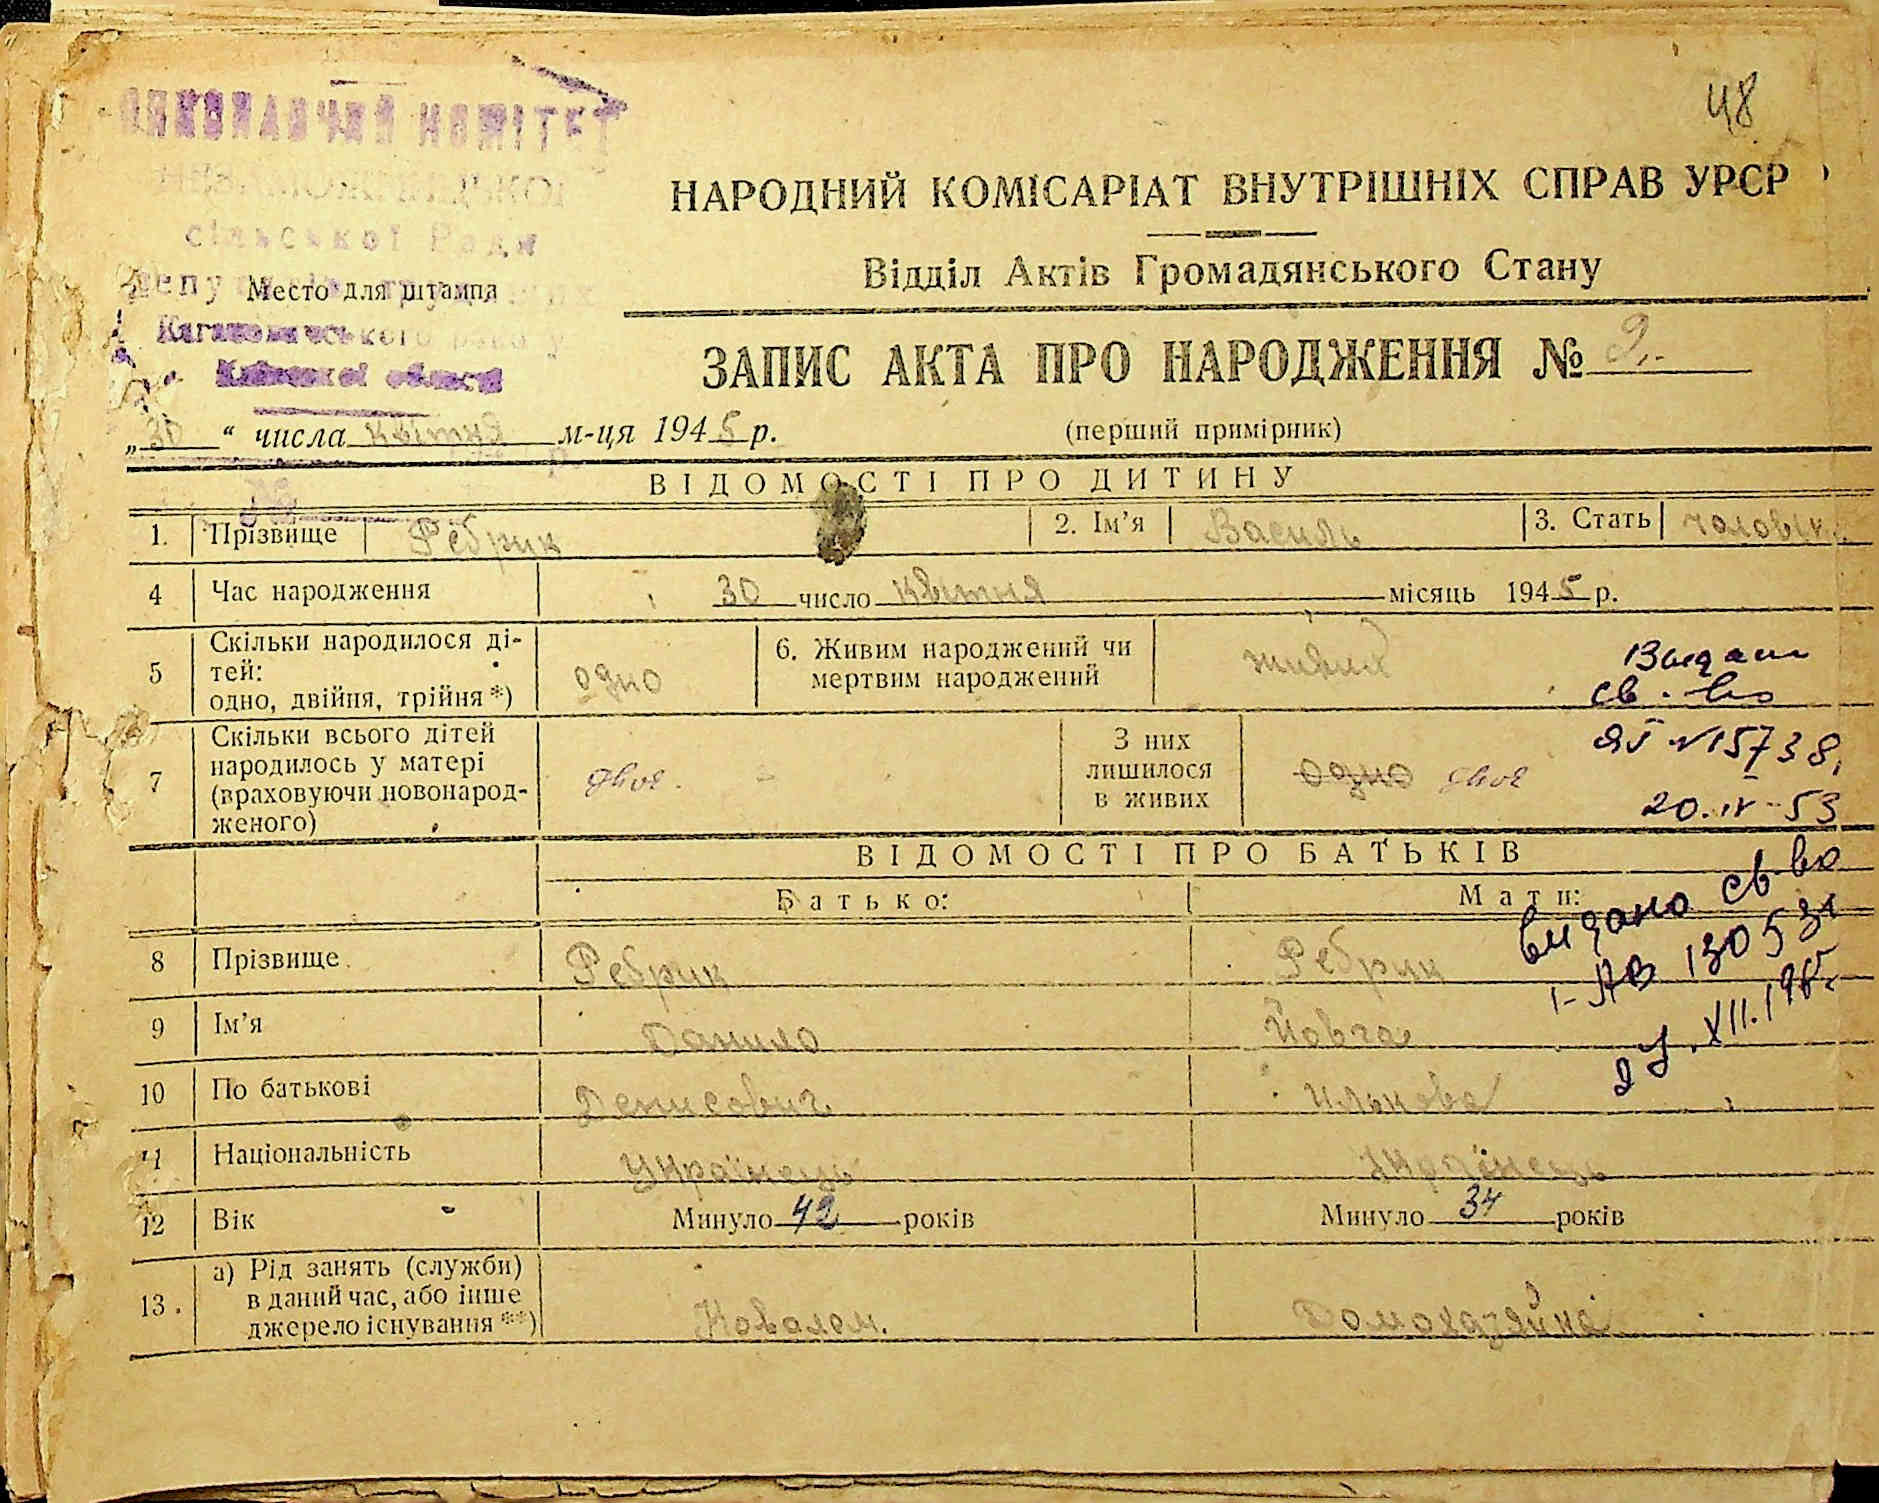 48
ВИКОНАВЧИЙ КОМІТЕТ
сільської Ради
Кагановичського району
Київської області
Место для штампа
НАРОДНИЙ КОМІСАРІАТ ВНУТРІШНІХ СПРАВ УРСР
Відділ Актів Громадянського Стану
ЗАПИС АКТА ПРО НАРОДЖЕННЯ № 9
„30“ числа квітня м-ця 1945 р.
(перший примірник)
ВІДОМОСТІ ПРО ДИТИНУ
1. Прізвище Ребрик 2. Ім’я Василь 3. Стать чоловік.
4 Час народження 30 число квітня місяць 1945 р.
5 Скільки народилося ді-
тей:
одно, двійня, трійня *) одно
6. Живим народжений чи
мертвим народжений живий
Выдан
св-во
ЯГ №15738
20.IV-53
7 Скільки всього дітей
народилось у матері
(враховуючи новонарод-
женого) двоє.
З них
лишилося
в живих одно двоє
ВІДОМОСТІ ПРО БАТЬКІВ
Батько: Мати:
видано св-во
I-АВ 130531
XII.1965
8 Прізвище Ребрик Ребрик
9 Ім’я Данило Йовга
10 По батькові Денисович Илькова
11 Національність Українець Українець
12 Вік Минуло 42 років Минуло 34 років
13. а) Рід занять (служби)
в даний час, або інше
джерело існування **) Ковалем. Домохазяйка